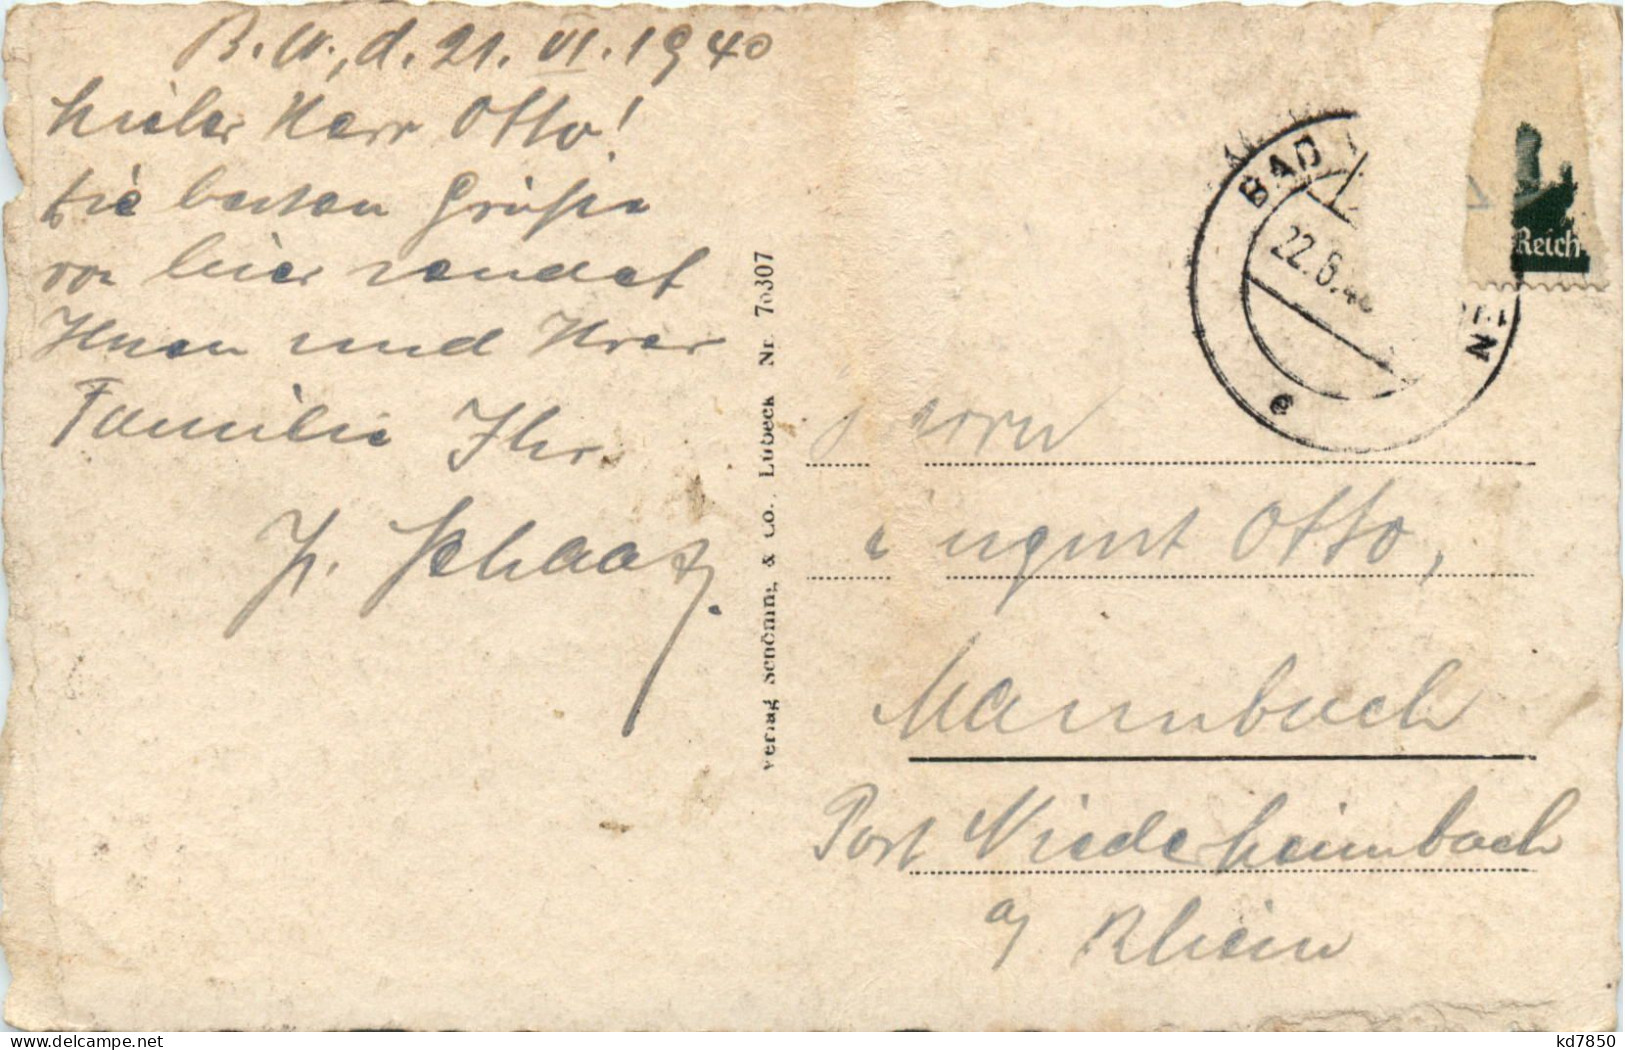 B.W., d. 21. VI. 1940
Lieber Herr Otto!
Die besten Grüße
von hier sendet
Ihnen und Ihrer
Familie Ihr
Verlag Schöning & Co., Lübeck Nr. 76307
BAD
22.6.4
N
e
Reich
Herrn
August Otto,
Mannbach
Post Niederheimbach
a/ Rhein
kd7850